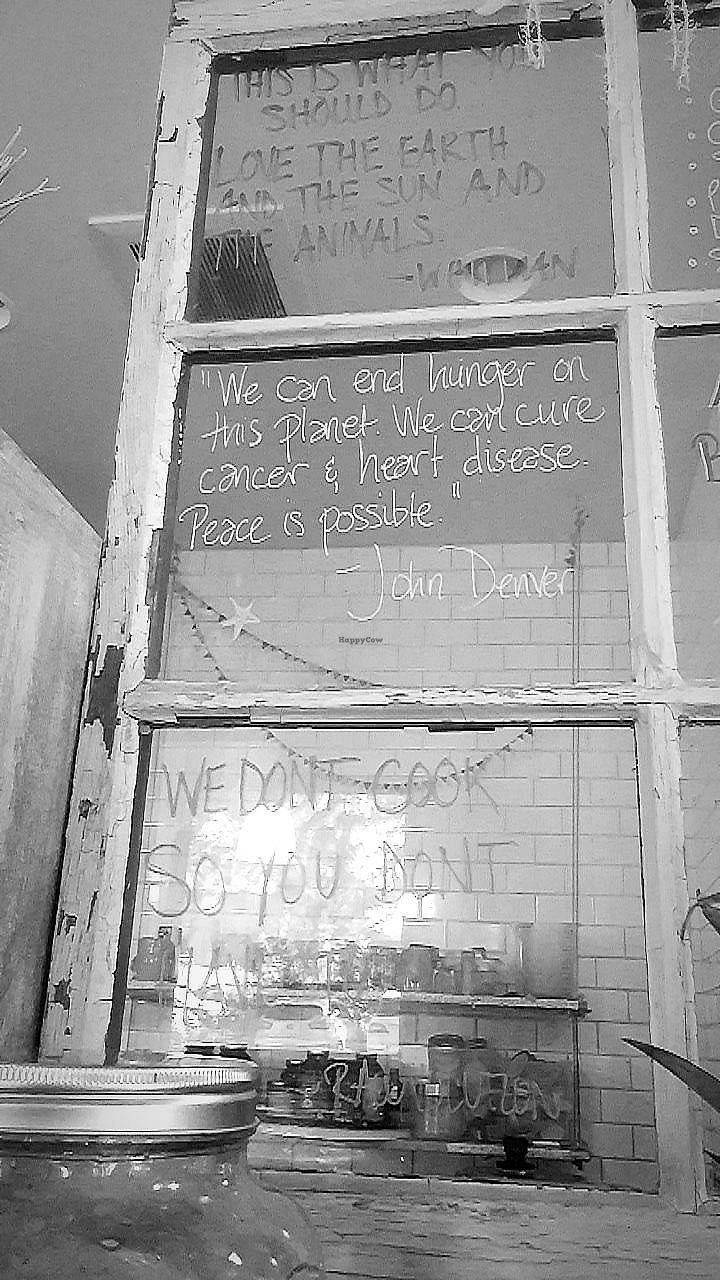 THIS IS WHAT YOU
SHOULD DO.
LOVE THE EARTH
AND THE SUN AND
THE ANIMALS.
-WHITMAN
"We can end hunger on
this planet. We can cure
cancer & heart disease.
Peace is possible."
- John Denver
HappyCow
WE DONT COOK
SO YOU DONT